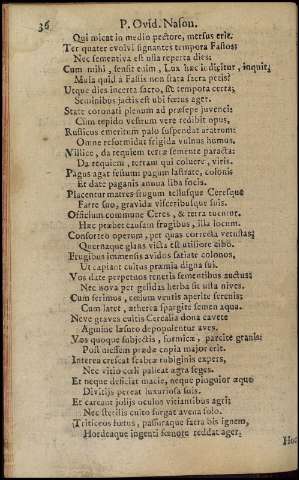 36 P. Ovid. Nason.
Qui micat in medio pectore, mersus erit.
Ter quater evolvi signantes tempora Fastos;
Nec sementiva est ulla reperta dies:
Cum mihi, sensit enim, Lux hæc indicitur, inquit;
Musa quid à Fastis non stata sacra petis?
Utque dies incerta sacro, sic tempora certa;
Seminibus jactis est ubi fœtus ager.
State coronati plenum ad præsepe juvenci:
Cum tepido vestrum vere redibit opus,
Rusticus emeritum palo suspendat aratrum:
Omne reformidat frigida vulnus humus.
Villice, da requiem terræ semente paracta:
Da requiem, terram qui coluere, viris.
Pagus agat festum: pagum lustrate, coloni
Et date paganis annua liba focis.
Placentur matres frugum tellusque Ceresque
Farre suo, gravidæ visceribusque suis.
Officium commune Ceres, & terra tuentur.
Hæc præbet causam frugibus, illa locum.
Consortes operum, per quas correcta vetustas;
Quernaque glans victa est utiliore cibo.
Frugibus immensis avidos satiate colonos,
Ut capiant cultus præmia digna sui.
Vos date perpetuos teneris sementibus auctus;
Nec nova per gelidas herba sit usta nives.
Cum serimus, cœlum ventis aperite serenis;
Cum latet, ætherea spargite semen aqua.
Neve graves cultis Cerealia dona cavete
Agmine læsuro depopulentur aves.
Vos quoque subjectis, formicæ, parcite granis:
Post messem prædæ copia major erit.
Interea crescat scabræ rubiginis expers,
Nec vitio cœli palleat ægra seges.
Et neque deficiat macie, neque pinguior æquo
Divitiis pereat luxuriosa suis.
Et careant loliis oculos vitiantibus agri;
Nec sterilis culto surgat avena solo.
Triticeos fœtus, passuraque farra bis ignem,
Hordeaque ingenti fœnore reddat ager.